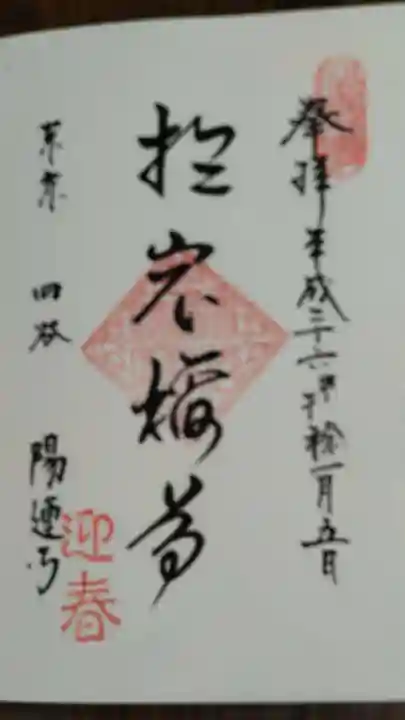 奉拝 平成二十六甲午稔一月五日
於岩稲荷
東京 四谷 陽運寺
迎春